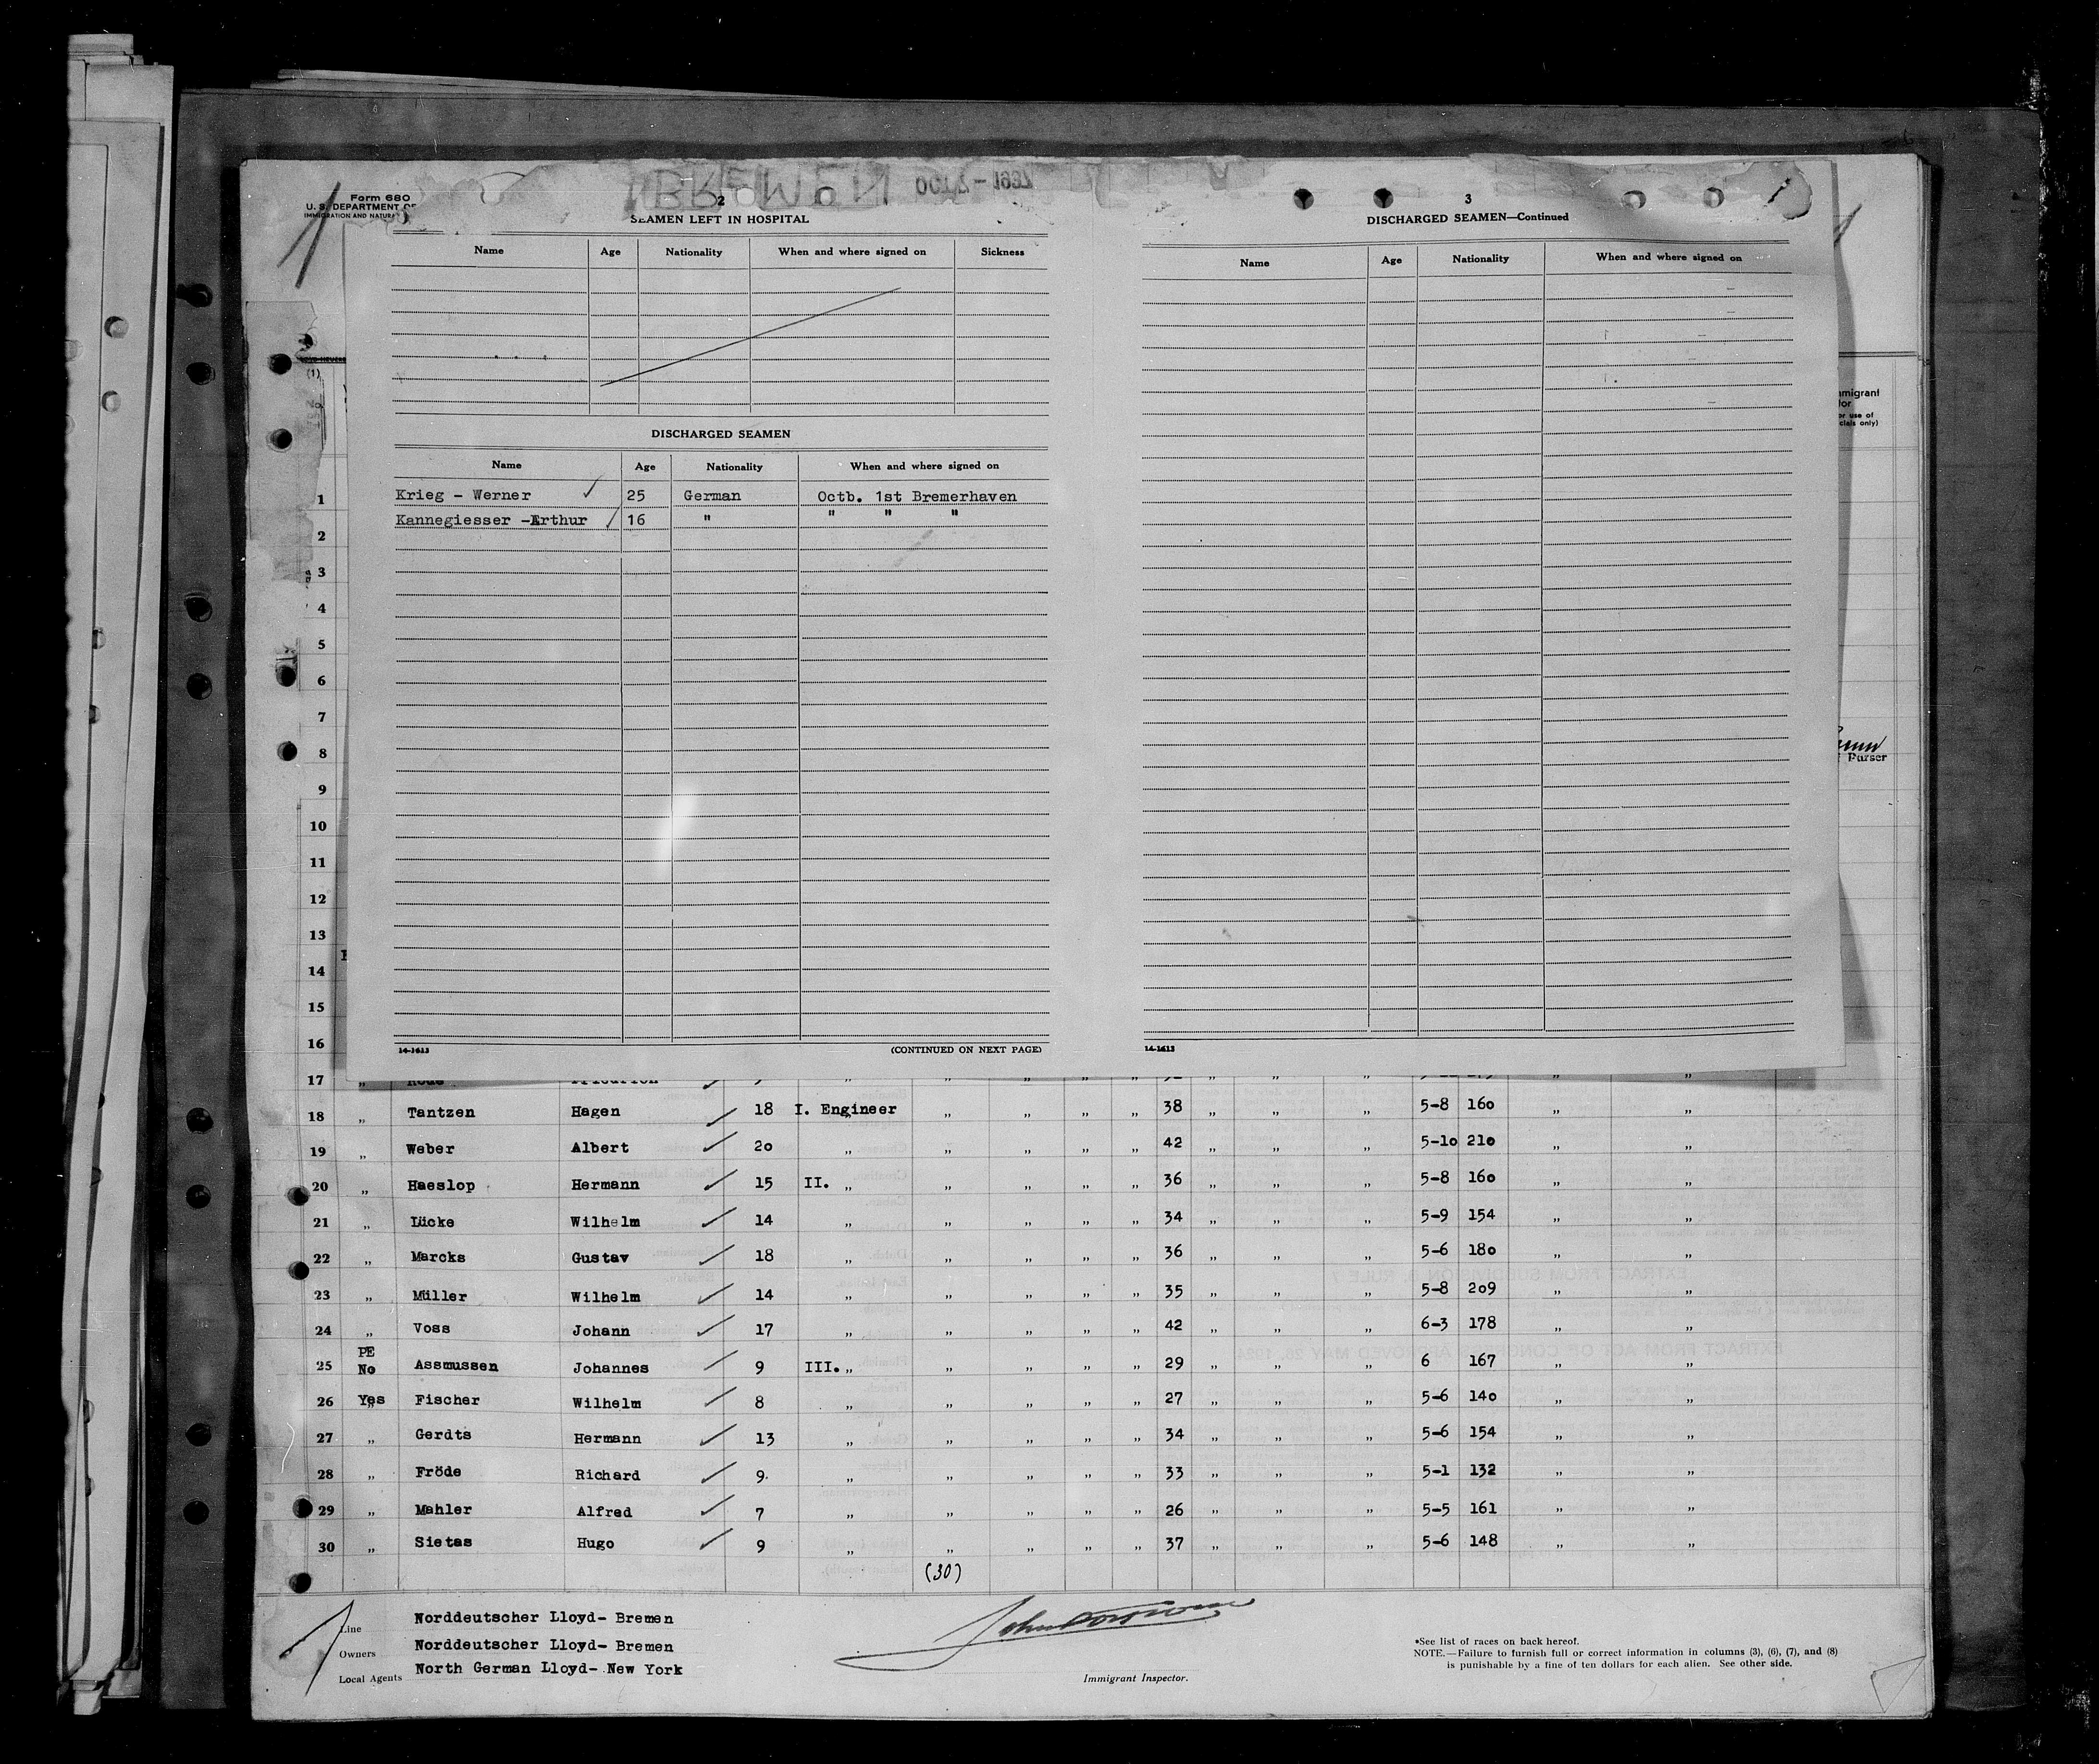 Form 680
U. S. DEPARTMENT OF
IMMIGRATION AND NATUR
BREMEN OCT 7 - 1937
2
SEAMEN LEFT IN HOSPITAL
Name Age Nationality When and where signed on Sickness
DISCHARGED SEAMEN
Name Age Nationality When and where signed on
Krieg - Werner ✓ 25 German Octb. 1st Bremerhaven
Kannegiesser -Arthur ✓ 16 " " " "
14-1613 (CONTINUED ON NEXT PAGE)
3
DISCHARGED SEAMEN—Continued
Name Age Nationality When and where signed on
14-1613
(1)
mmigrant
tor
or use of
cials only)
Purser
1
2
3
4
5
6
7
8
9
10
11
12
13
14
15
16
17
18 „ Tantzen Hagen ✓ 18 I. Engineer „ „ „ „ 38 „ „ „ 5-8 160 „ „
19 „ Weber Albert ✓ 20 „ „ „ „ „ 42 „ „ „ 5-10 210 „ „
20 „ Haeslop Hermann ✓ 15 II. „ „ „ „ „ 36 „ „ „ 5-8 160 „ „
21 „ Lücke Wilhelm ✓ 14 „ „ „ „ „ 34 „ „ „ 5-9 154 „ „
22 „ Marcks Gustav ✓ 18 „ „ „ „ „ 36 „ „ „ 5-6 180 „ „
23 „ Müller Wilhelm ✓ 14 „ „ „ „ „ 35 „ „ „ 5-8 209 „ „
24 „ Voss Johann ✓ 17 „ „ „ „ „ 42 „ „ „ 6-3 178 „ „
25 PE No Assmussen Johannes ✓ 9 III. „ „ „ „ „ 29 „ „ „ 6 167 „ „
26 Yes Fischer Wilhelm ✓ 8 „ „ „ „ „ 27 „ „ „ 5-6 140 „ „
27 „ Gerdts Hermann ✓ 13 „ „ „ „ „ 34 „ „ „ 5-6 154 „ „
28 „ Fröde Richard ✓ 9. „ „ „ „ „ 33 „ „ „ 5-1 132 „ „
29 „ Mahler Alfred ✓ 7 „ „ „ „ „ 26 „ „ „ 5-5 161 „ „
30 „ Sietas Hugo ✓ 9 „ „ „ „ „ 37 „ „ „ 5-6 148 „ „
(30)
Line Norddeutscher Lloyd- Bremen
Owners Norddeutscher Lloyd- Bremen
Local Agents North German Lloyd- New York
Immigrant Inspector.
*See list of races on back hereof.
NOTE.—Failure to furnish full or correct information in columns (3), (6), (7), and (8)
is punishable by a fine of ten dollars for each alien. See other side.